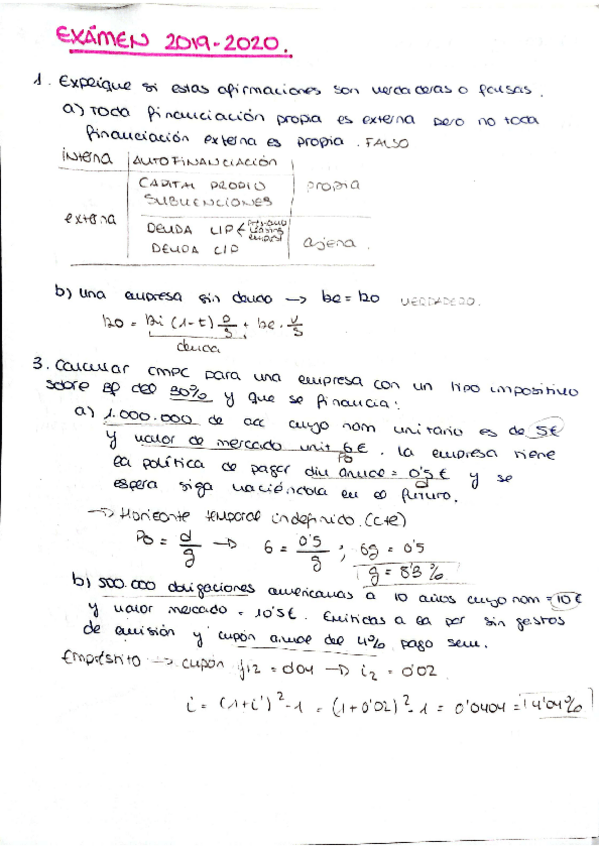 EXÁMEN 2019-2020.
1. Explique si estas afirmaciones son verdaderas o falsas.
a) Toda financiación propia es externa pero no toda
financiación externa es propia. FALSO
interna AUTOFINANCIACIÓN
CAPITAL PROPIO propia
SUBVENCIONES
externa
DEUDA L/P < préstamo leasing emprest
DEUDA C/P ajena.
b) Una empresa sin deuda → ke = ko VERDADERO.
ko = ki (1-t) D/S + ke · V/S
deuda
3. Calcular CMPC para una empresa con un tipo impositivo
sobre Bº del 30% y que se financia:
a) 1.000.000 de acc cuyo nom unitario es de 5€
y valor de mercado unit 6€. La empresa tiene
Po
la política de pagar div anual = 0'5€ y se
d
espera siga haciéndola en el futuro.
→ Horizonte temporal indefinido. (cte)
Po = d/g → 6 = 0'5/g ; 6g = 0'5
g = 8'3 %
b) 500.000 obligaciones americanas a 10 años cuyo nom = 10€
y valor mercado = 10'5€. Emitidas a la par sin gastos
de emisión y cupón anual del 4% pago sem.
Empréstito → cupón j12 = 0'04 → i2 = 0'02
i = (1+i')² - 1 = (1+0'02)² - 1 = 0'0404 = 4'04%